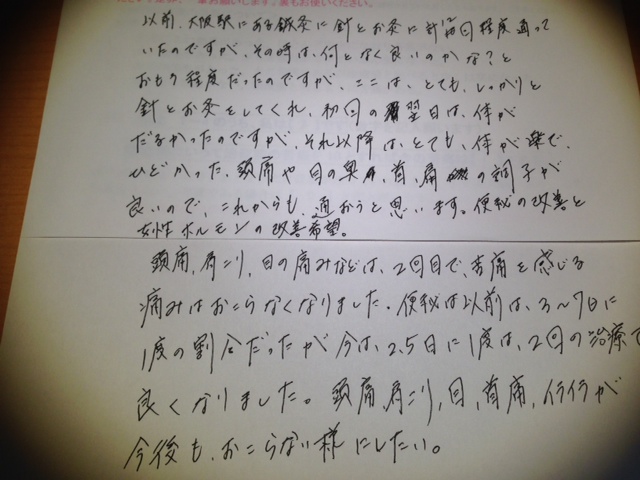 お願いします。裏もお使いください。
以前、大阪駅にある鍼灸に針とお灸に計12回程度通って
いたのですが、その時は、何となく良いのかな?と
おもう程度だったのですが、ここは、とても、しっかりと
針とお灸をしてくれ、初回の翌日は、体が
だるかったのですが、それ以降は、とても、体が楽で、
ひどかった、頭痛や目の奥、首、肩の調子が
良いので、これからも、通おうと思います。便秘の改善と
女性ホルモンの改善希望。
頭痛、肩こり、目の痛みなどは、2回目で、苦痛を感じる
痛みはおこらなくなりました。便秘は以前は、3〜7日に
1度の割合だったが今は、2.5日に1度は、2回の治療で
良くなりました。頭痛、肩こり、目、首痛、イライラが
今後も、おこらない様にしたい。